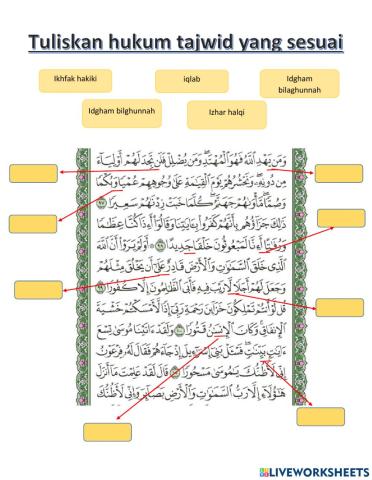 Tuliskan hukum tajwid yang sesuai
Ikhfak hakiki
iqlab
Idgham
bilaghunnah
Idgham bilghunnah
Izhar halqi
وَمَن يَهْدِ ٱللَّهُ فَهُوَ ٱلْمُهْتَدِ وَمَن يُضْلِلْ فَلَن تَجِدَ لَهُمْ أَوْلِيَآءَ
مِن دُونِهِۦ وَنَحْشُرُهُمْ يَوْمَ ٱلْقِيَٰمَةِ عَلَىٰ وُجُوهِهِمْ عُمْيًا وَبُكْمًا
وَصُمًّا مَّأْوَىٰهُمْ جَهَنَّمُ كُلَّمَا خَبَتْ زِدْنَٰهُمْ سَعِيرًا ٩٧
ذَٰلِكَ جَزَآؤُهُم بِأَنَّهُمْ كَفَرُوا۟ بِـَٔايَٰتِنَا وَقَالُوٓا۟ أَءِذَا كُنَّا عِظَٰمًا
وَرُفَٰتًا أَءِنَّا لَمَبْعُوثُونَ خَلْقًا جَدِيدًا ٩٨ أَوَلَمْ يَرَوْا۟ أَنَّ ٱللَّهَ
ٱلَّذِى خَلَقَ ٱلسَّمَٰوَٰتِ وَٱلْأَرْضَ قَادِرٌ عَلَىٰٓ أَن يَخْلُقَ مِثْلَهُمْ
وَجَعَلَ لَهُمْ أَجَلًا لَّا رَيْبَ فِيهِ فَأَبَى ٱلظَّٰلِمُونَ إِلَّا كُفُورًا ٩٩
قُل لَّوْ أَنتُمْ تَمْلِكُونَ خَزَآئِنَ رَحْمَةِ رَبِّىٓ إِذًا لَّأَمْسَكْتُمْ خَشْيَةَ
ٱلْإِنفَاقِ وَكَانَ ٱلْإِنسَٰنُ قَتُورًا ١٠٠ وَلَقَدْ ءَاتَيْنَا مُوسَىٰ تِسْعَ
ءَايَٰتٍۭ بَيِّنَٰتٍ فَسْـَٔلْ بَنِىٓ إِسْرَٰٓءِيلَ إِذْ جَآءَهُمْ فَقَالَ لَهُۥ فِرْعَوْنُ
إِنِّى لَأَظُنُّكَ يَٰمُوسَىٰ مَسْحُورًا ١٠١ قَالَ لَقَدْ عَلِمْتَ مَآ أَنزَلَ
هَٰٓؤُلَآءِ إِلَّا رَبُّ ٱلسَّمَٰوَٰتِ وَٱلْأَرْضِ بَصَآئِرَ وَإِنِّى لَأَظُنُّكَ
LIVEWORKSHEETS